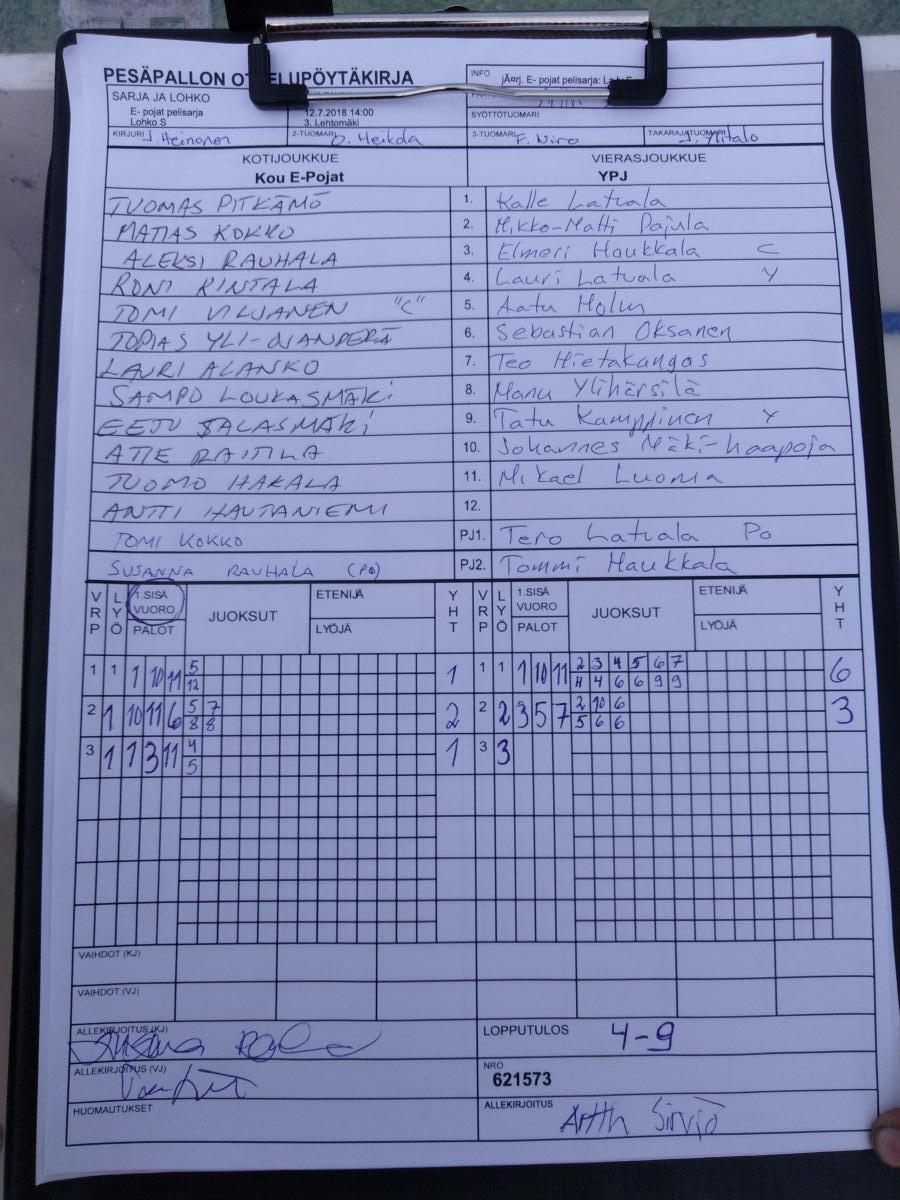 PESÄPALLON OTTELUPÖYTÄKIRJA
INFO
jÄ¤rj. E- pojat pelisarja:
SARJA JA LOHKO
E- pojat pelisarja
Lohko S
12.7.2018 14:00
3. Lehtomäki
SYÖTTÖTUOMARI
KIRJURI J. Heinonen
2-TUOMARI O. Heikola
3-TUOMARI F. Niro
TAKARAJATUOMARI J. Ylitalo
KOTIJOUKKUE
Kou E-Pojat
VIERASJOUKKUE
YPJ
TUOMAS PITKÄMÖ 1. Kalle Latvala
MATIAS KOKKO 2. Mikko-Matti Pajula
ALEKSI RAUHALA 3. Elmeri Haukkala C
RONI RINTALA 4. Lauri Latvala Y
TOMI "C" 5. Aatu
TOPIAS YLI-OJANPERÄ 6. Sebastian Oksanen
LAURI ALANKO 7. Teo Hietakangas
SAMPO LOUKASMÄKi 8. Manu Ylihärsilä
EETU SALASMÄKi 9. Tatu Kamppinen Y
ATTE RAITILA 10. Johannes Mäki-haapoja
TUOMO HAKALA 11. Mikael Luoma
ANTTI HAUTANIEMI 12.
TOMI KOKKO PJ1. Tero Latvala Po
SUSANNA RAUHALA (PO) PJ2. Tommi Haukkala
VRP LYÖ 1.SISÄ VUORO PALOT JUOKSUT ETENIJÄ LYÖJÄ YHT VRP LYÖ 1.SISÄ VUORO PALOT JUOKSUT ETENIJÄ LYÖJÄ YHT
1 1 1 10 11 5 1 1 1 1 10 11 2 3 4 5 6 7 6
12 4 4 6 6 9 9
2 1 10 11 6 5 7 2 2 2 3 5 7 2 10 6 3
8 8 5 6 6
3 1 1 3 11 4 1 3 3
5
VAIHDOT (KJ)
VAIHDOT (VJ)
ALLEKIRJOITUS (KJ)
LOPPUTULOS 4-9
ALLEKIRJOITUS (VJ)
NRO
621573
HUOMAUTUKSET
ALLEKIRJOITUS